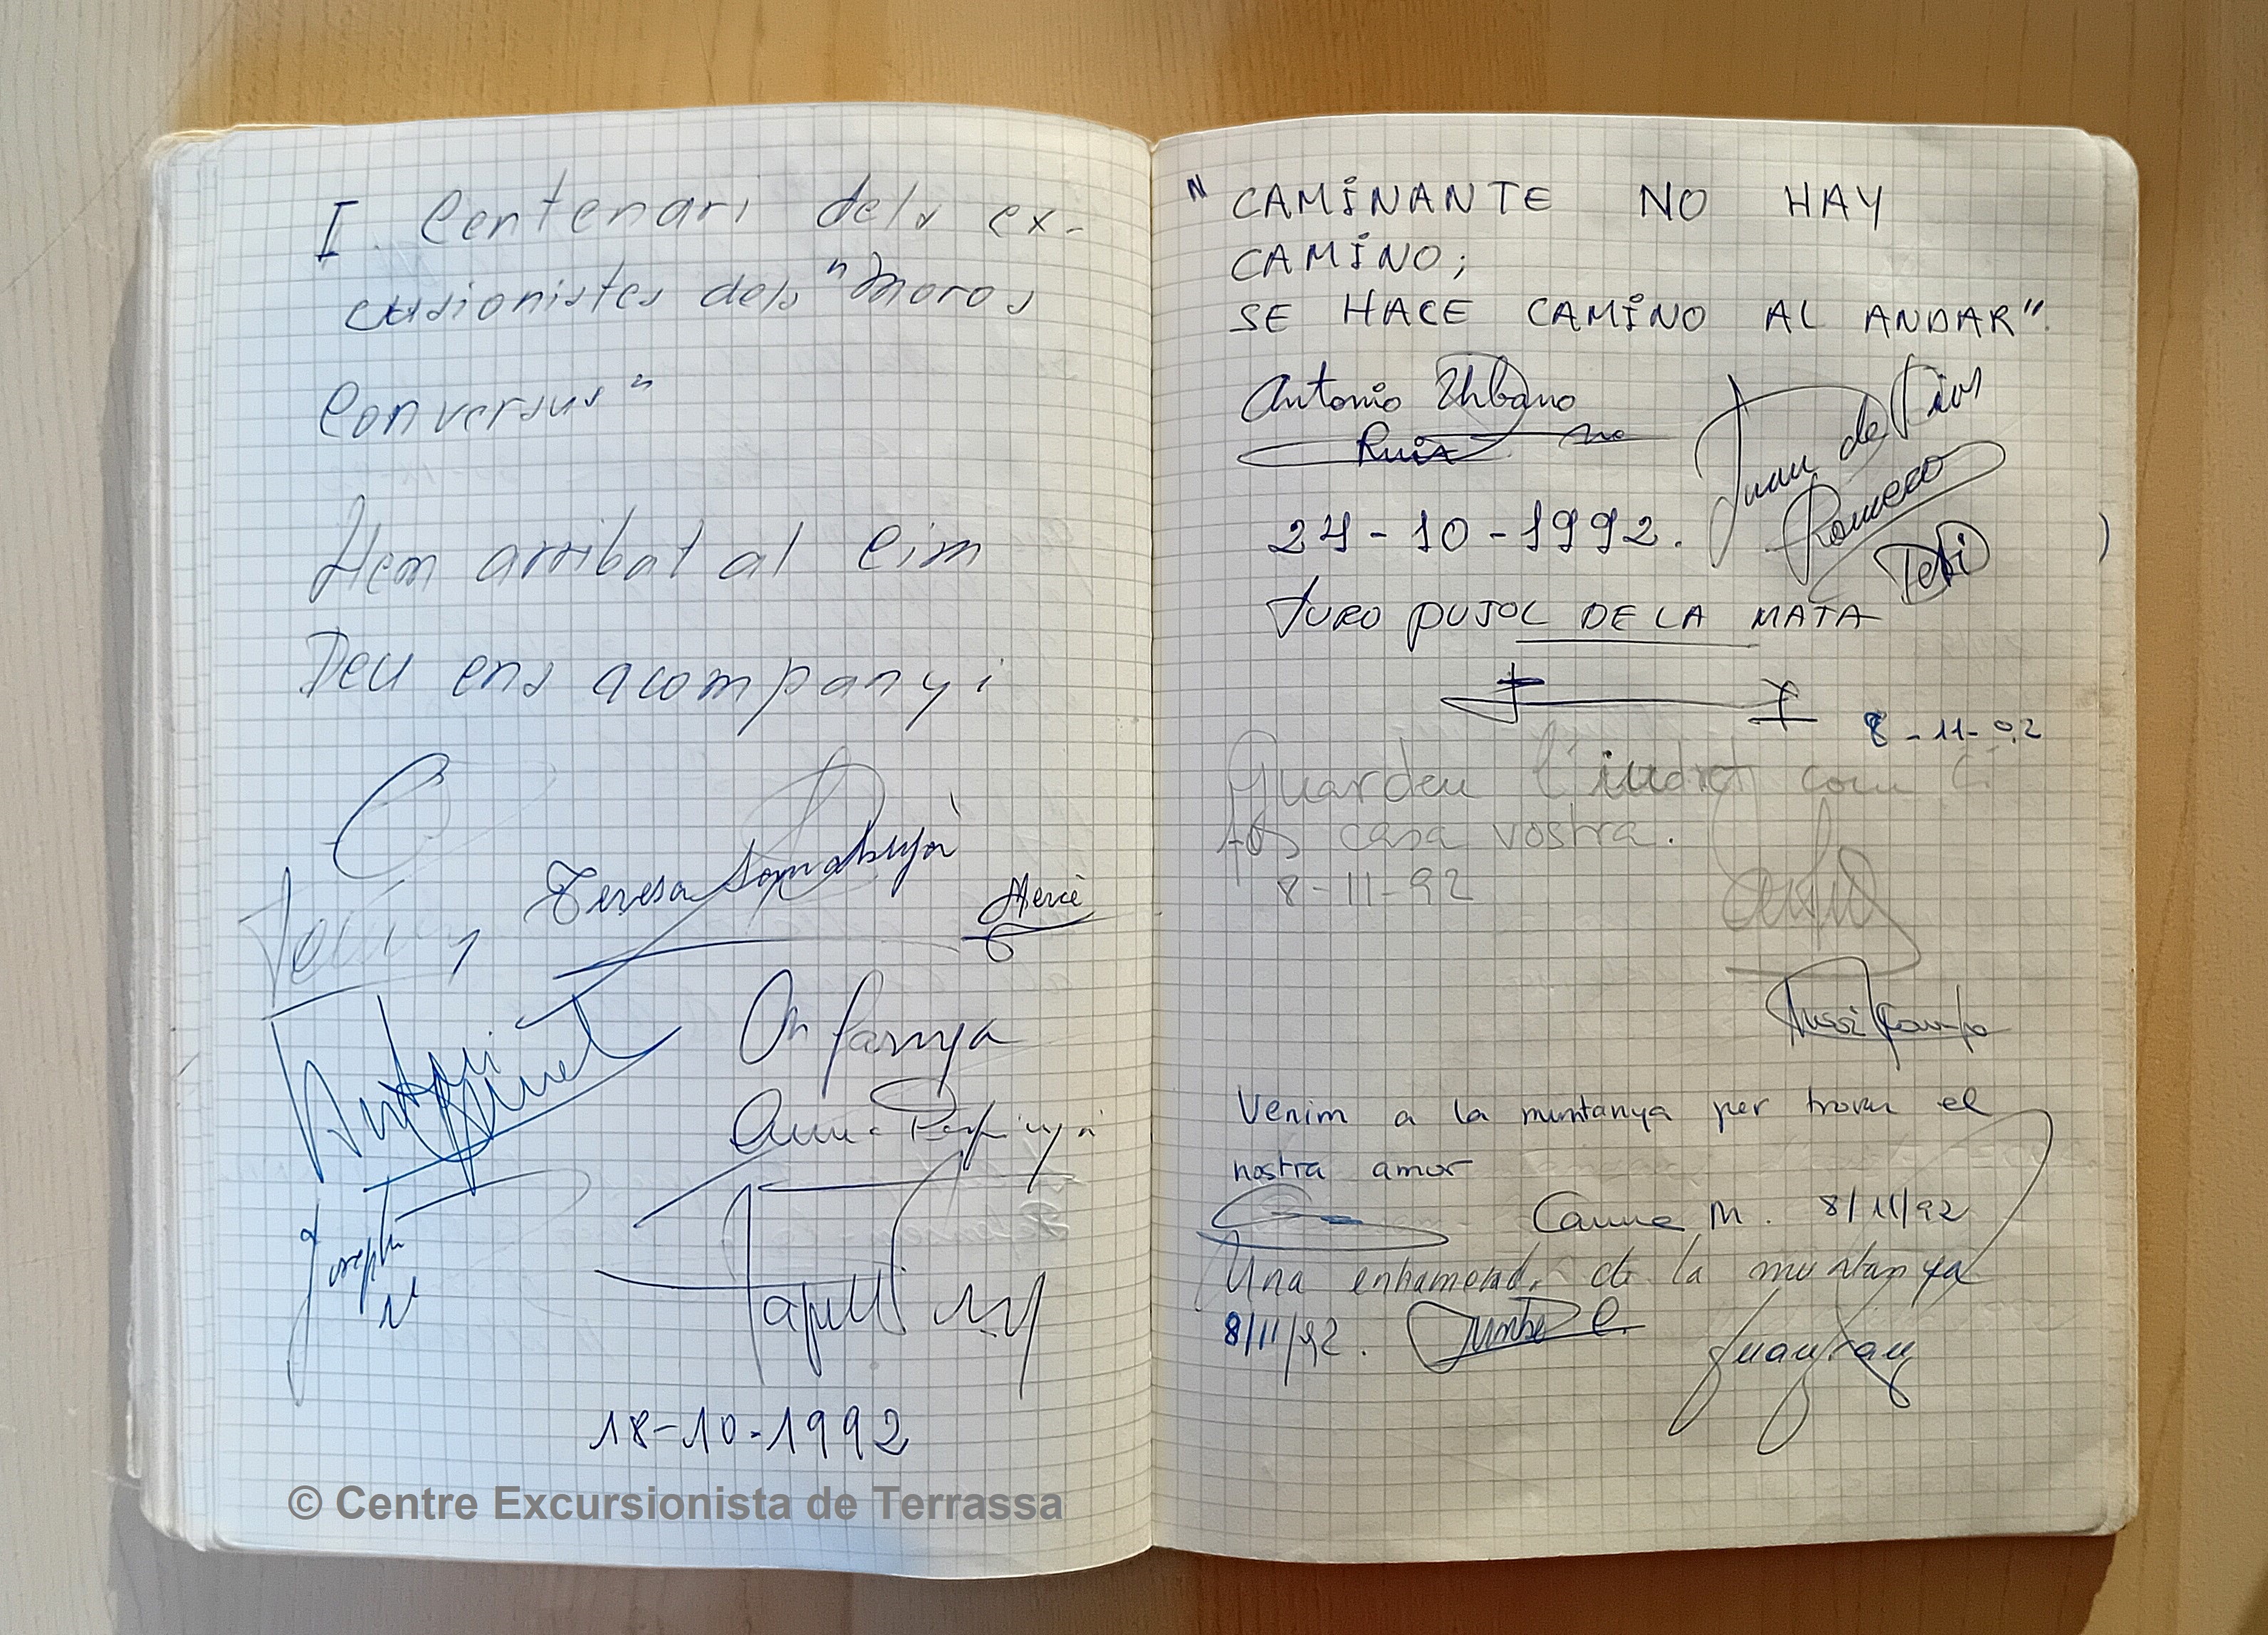 I. Centenari dels ex-
cusionistes dels "Moros
Conversus"
Hem arribat al cim
Deu ens acompanyi
Teresa
Mercè
Antoni
Anna
Joseph
18-10-1992
© Centre Excursionista de Terrassa
"CAMINANTE NO HAY
CAMINO;
SE HACE CAMINO AL ANDAR".
Antonio Urbano
Ruiz
Juan de Dios
Romero
24-10-1992.
TURO PUJOL DE LA MATA
8-11-92
Guardeu l'indret com si
fos casa vostra.
8-11-92
Venim a la muntanya per trovar el
nostra amor
Carme M. 8/11/92
Una enhamorada de la muntanya
8/11/92.